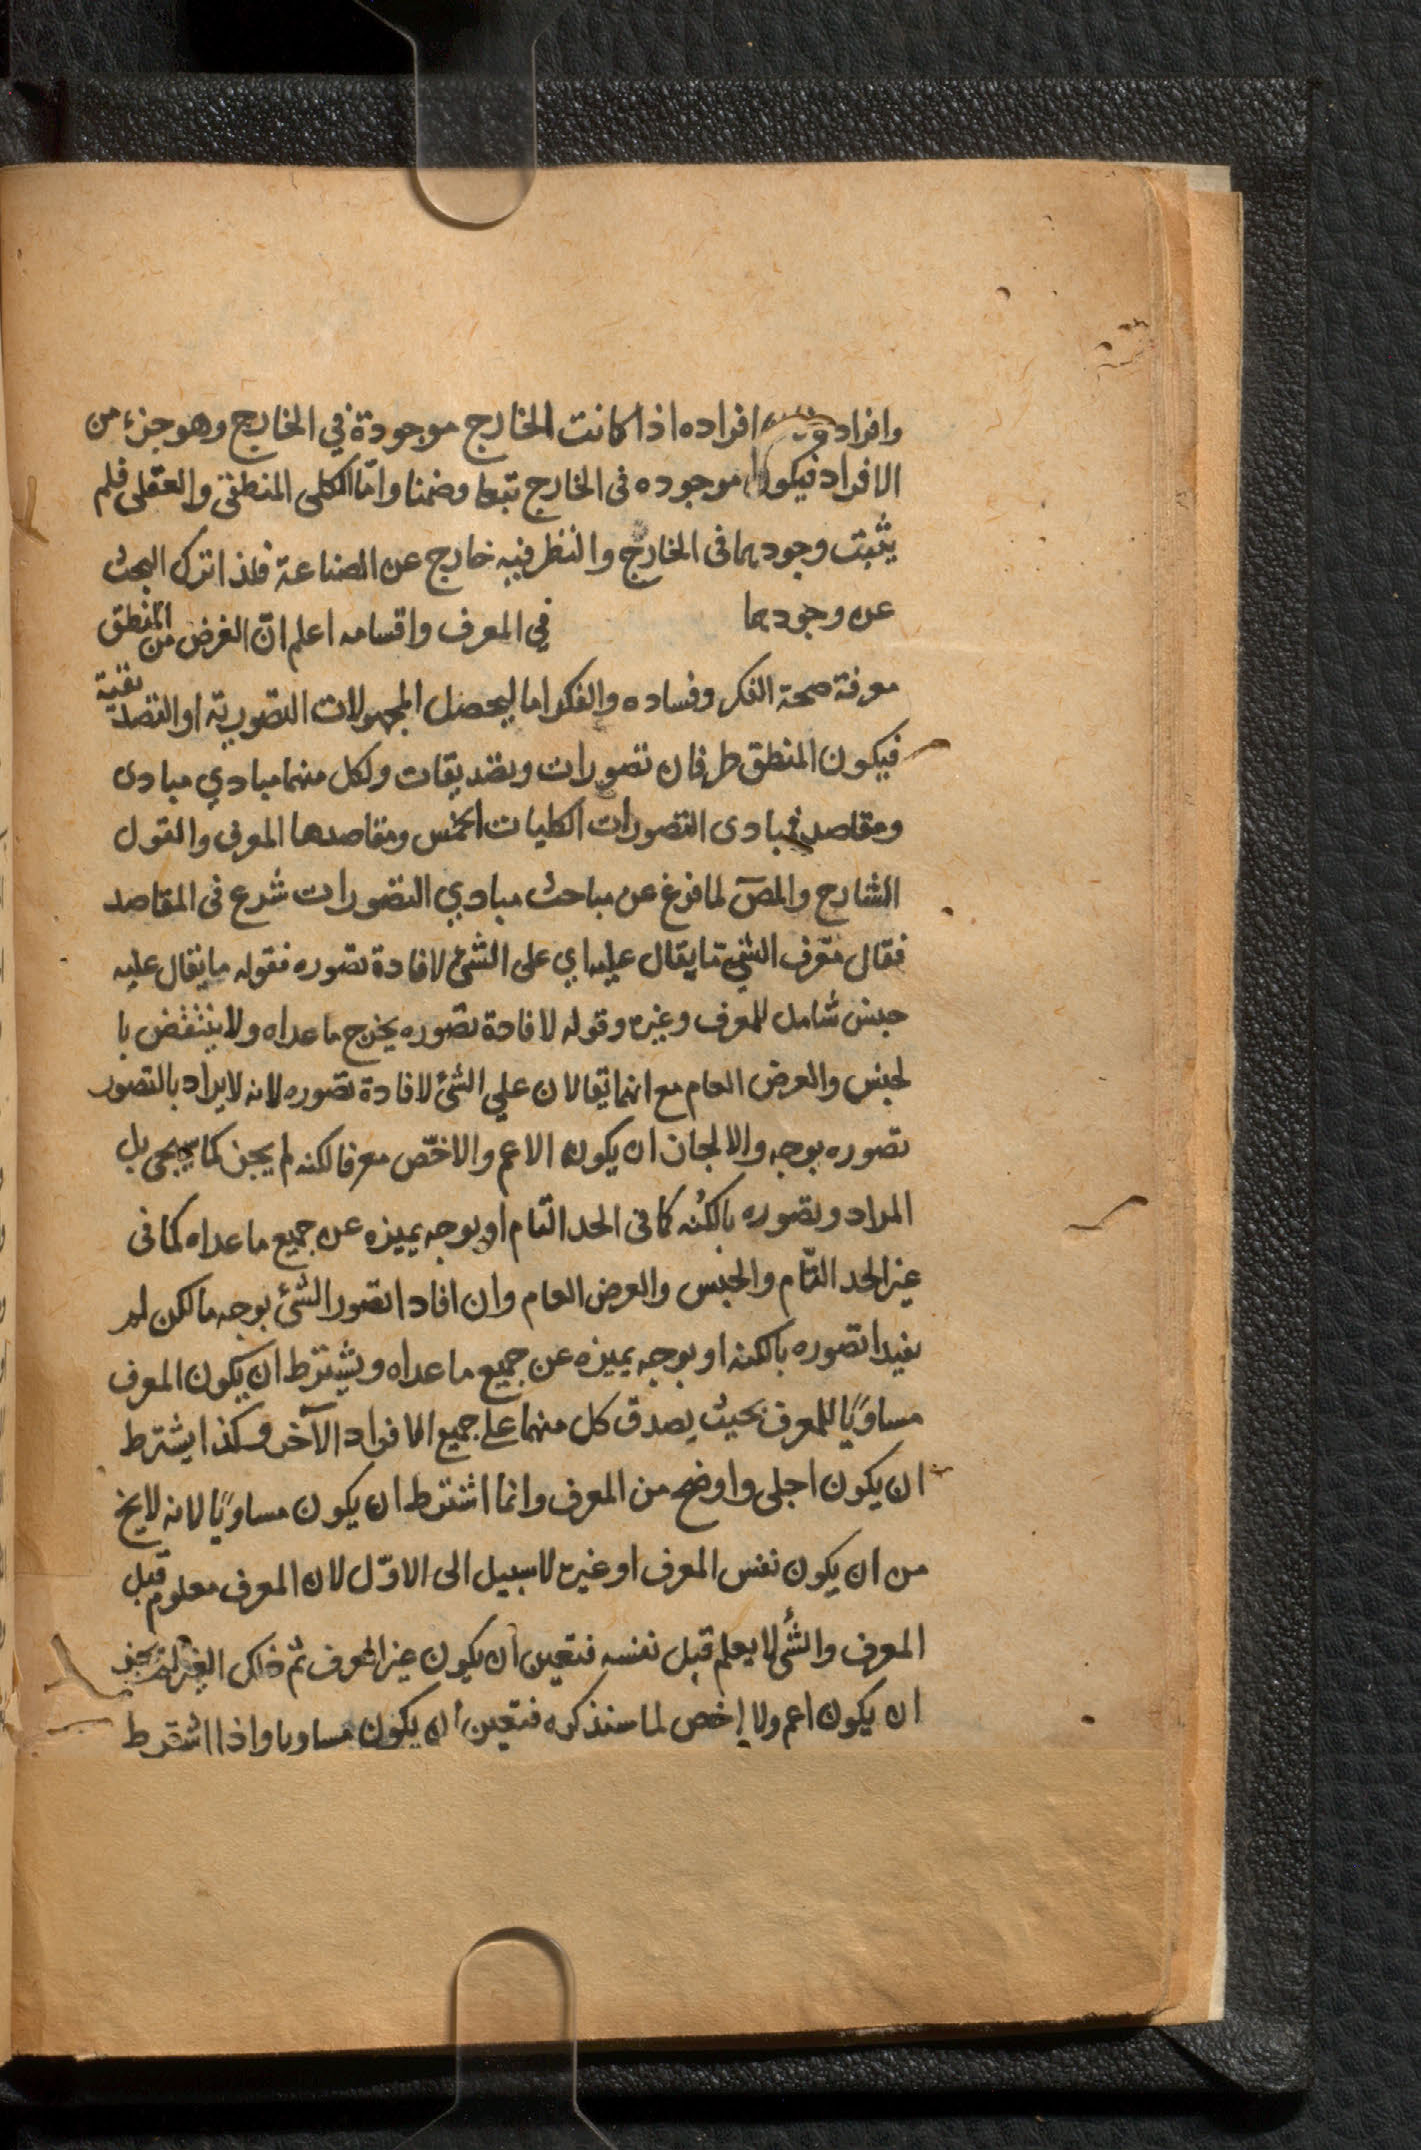 وافراد افراده اذا كانت الخارج موجودة في الخارج وهو جزء من
الافراد فيكون موجوده فى الخارج تبعا وضمنا وامّا الكلى المنطقى والعقلى فلم
يثبت وجودهما فى الخارج والنظر فيه خارج عن الصناعة فلذا ترك البحث
عن وجودهما في المعرف واقسامه اعلم انّ الغرض من المنطق
معرفة صحة الفكر وفساده والفكر اما ليحصل المجهولات التصورية او التصديقية
فيكون المنطق طرفان تصورات وتصديقات ولكل منهما مبادي مبادى
ومقاصد فمبادى التصورات الكليات الخمس ومقاصدها المعرف والقول
الشارح والمصّ لما فرغ عن مباحث مبادي التصورات شرع فى المقاصد
فقال معّرف الشئ ما يقال عليه اي على الشئ لافادة تصوره فقوله ما يقال عليه
جنس شامل للمعرف وغيره وقوله لافادة تصوره يخرج ماعداه ولا ينتقض با
لجنس والعرض العام مع انهما يقالان علي الشئ لافادة تصوره لانه لا يراد بالتصور
تصوره بوجه والا لجاز ان يكون الاعم والاخّص معرفا لكنه لم يجز كما سيجئ بل
المراد وتصوره بالكُنه كما فى الحد التام او بوجه يميزه عن جميع ماعداه كما فى
غير الحد التّام والجنس والعرض العام وان افادا تصور الشئ بوجه ما لكن لم
يفيدا تصوره بالكنه او بوجه يميزه عن جميع ماعداه ويشترط ان يكون المعرف
مساويًا للمعرف بحيث يصدق كل منهما علي جميع الافراد الآخر وكذا يشترط
ان يكون اجلى واوضح من المعرف وانما اشترط ان يكون مساويًا لانه لا يخ
من ان يكون نفس المعرف او غيره لا سبيل الى الاوّل لان المعرف معلوم قبل
المعرف والشئ لا يعلم قبل نفسه فتعين ان يكون غير المعرف ثم ذلك الغير لم يجز
ان يكون اعم ولا اخص لما سنذكره فتعين ان يكون مساويا واذا اشترط